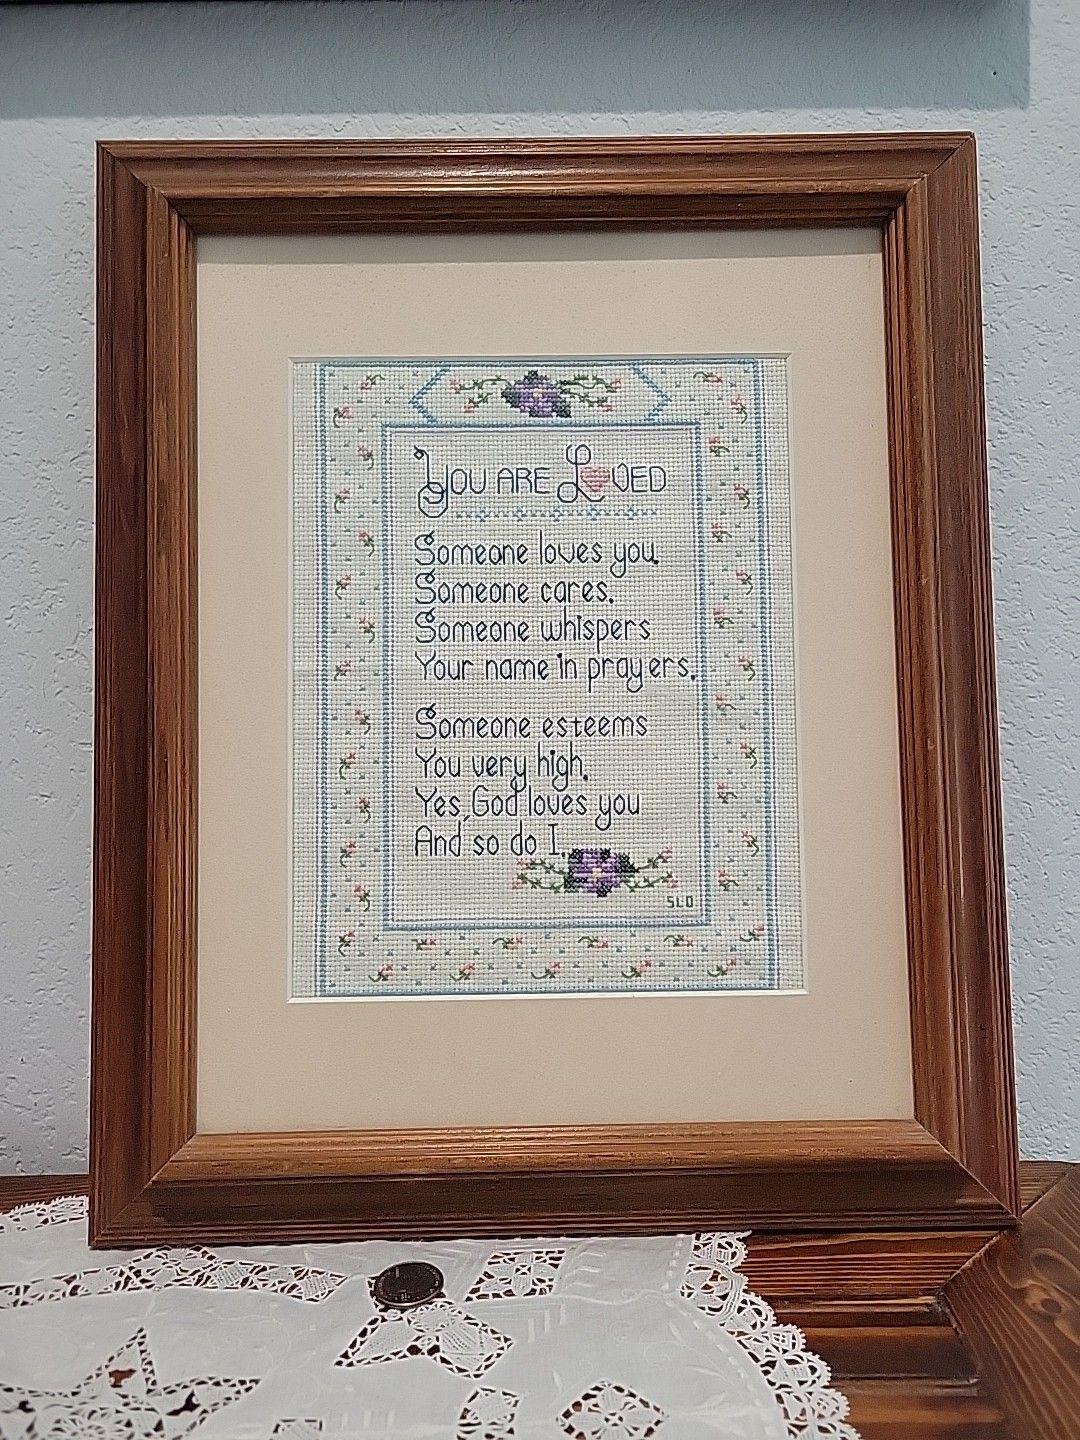 You are Loved
Someone loves you.
Someone cares.
Someone whispers
Your name in prayers.
Someone esteems
You very high.
Yes, God loves you
And so do I.
SLO